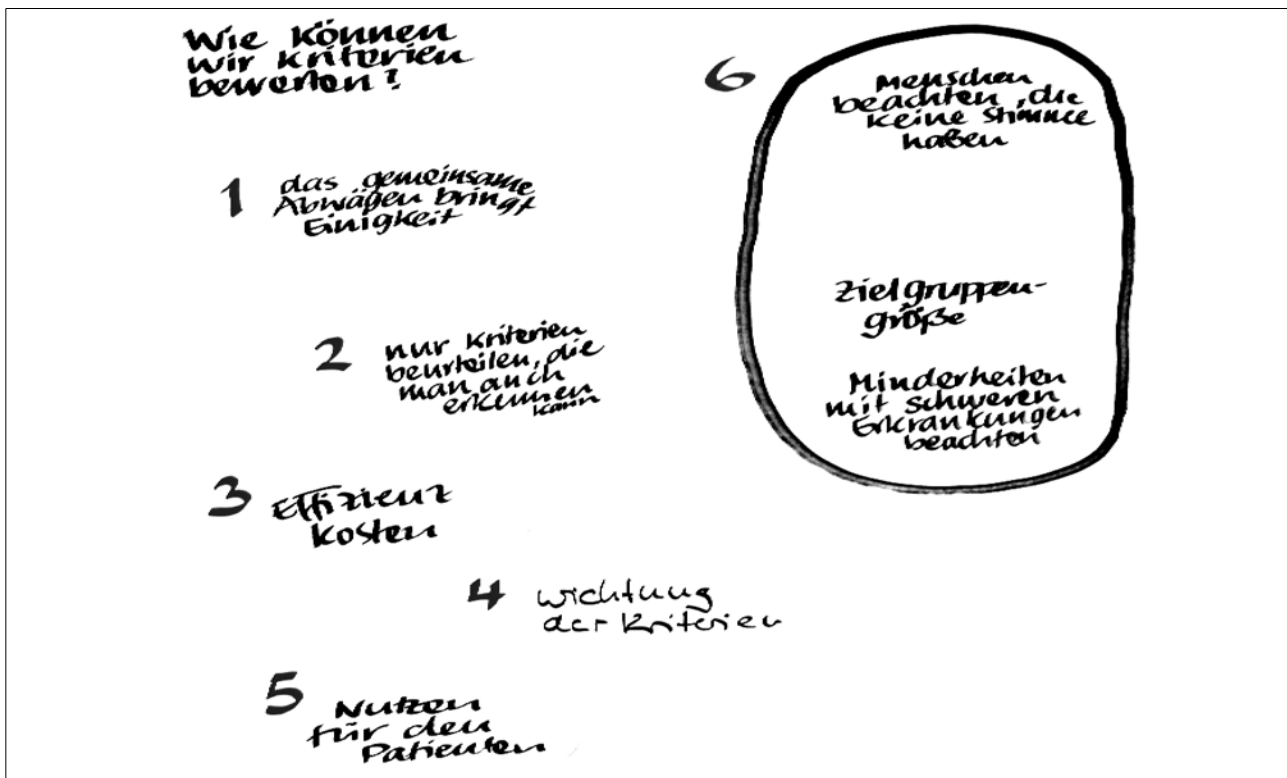 Wie können
wir kriterien
bewerten?
1 das gemeinsame
Abwägen bringt
Einigkeit
2 nur kriterien
beurteilen, die
man auch
erkennen
kann
3 Effizienz
kosten
4 wichtung
der Kriterien
5 Nutzen
für den
Patienten
6 Menschen
beachten, die
keine Stimme
haben
Zielgruppen-
größe
Minderheiten
mit schweren
Erkrankungen
beachten